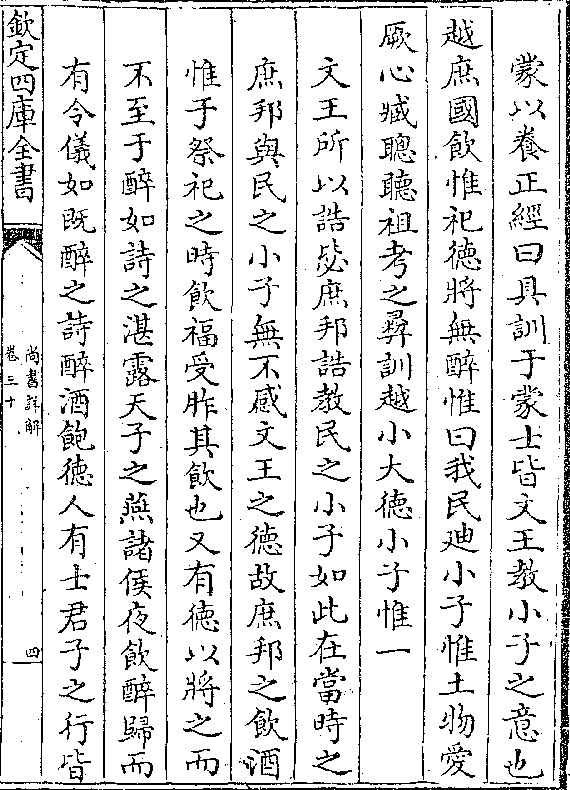 蒙以養正經曰具訓于蒙士皆文王教小子之意也
越庶國飲惟祀德將無醉惟曰我民迪小子惟土物愛
厥心臧聰聽祖考之彛訓越小大德小子惟一
文王所以誥毖庶邦誥教民之小子如此在當時之
庶邦與民之小子無不感文王之德故庶邦之飲酒
惟于祭祀之時飲福受胙其飲也又有德以將之而
不至于醉如詩之湛露天子之燕諸侯夜飲醉歸而
有令儀如既醉之詩醉酒飽德人有士君子之行皆
欽定四庫全書
尚書詳解
卷三十
四